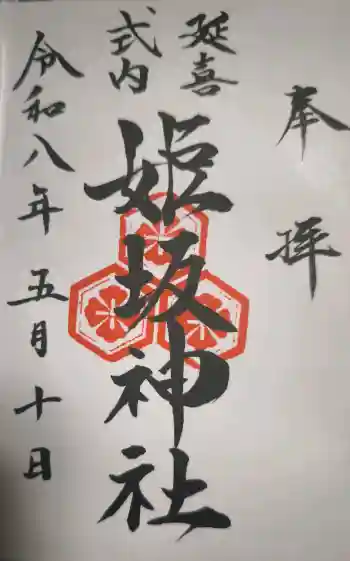 奉拝
延喜
式内
姫坂神社
令和八年五月十日